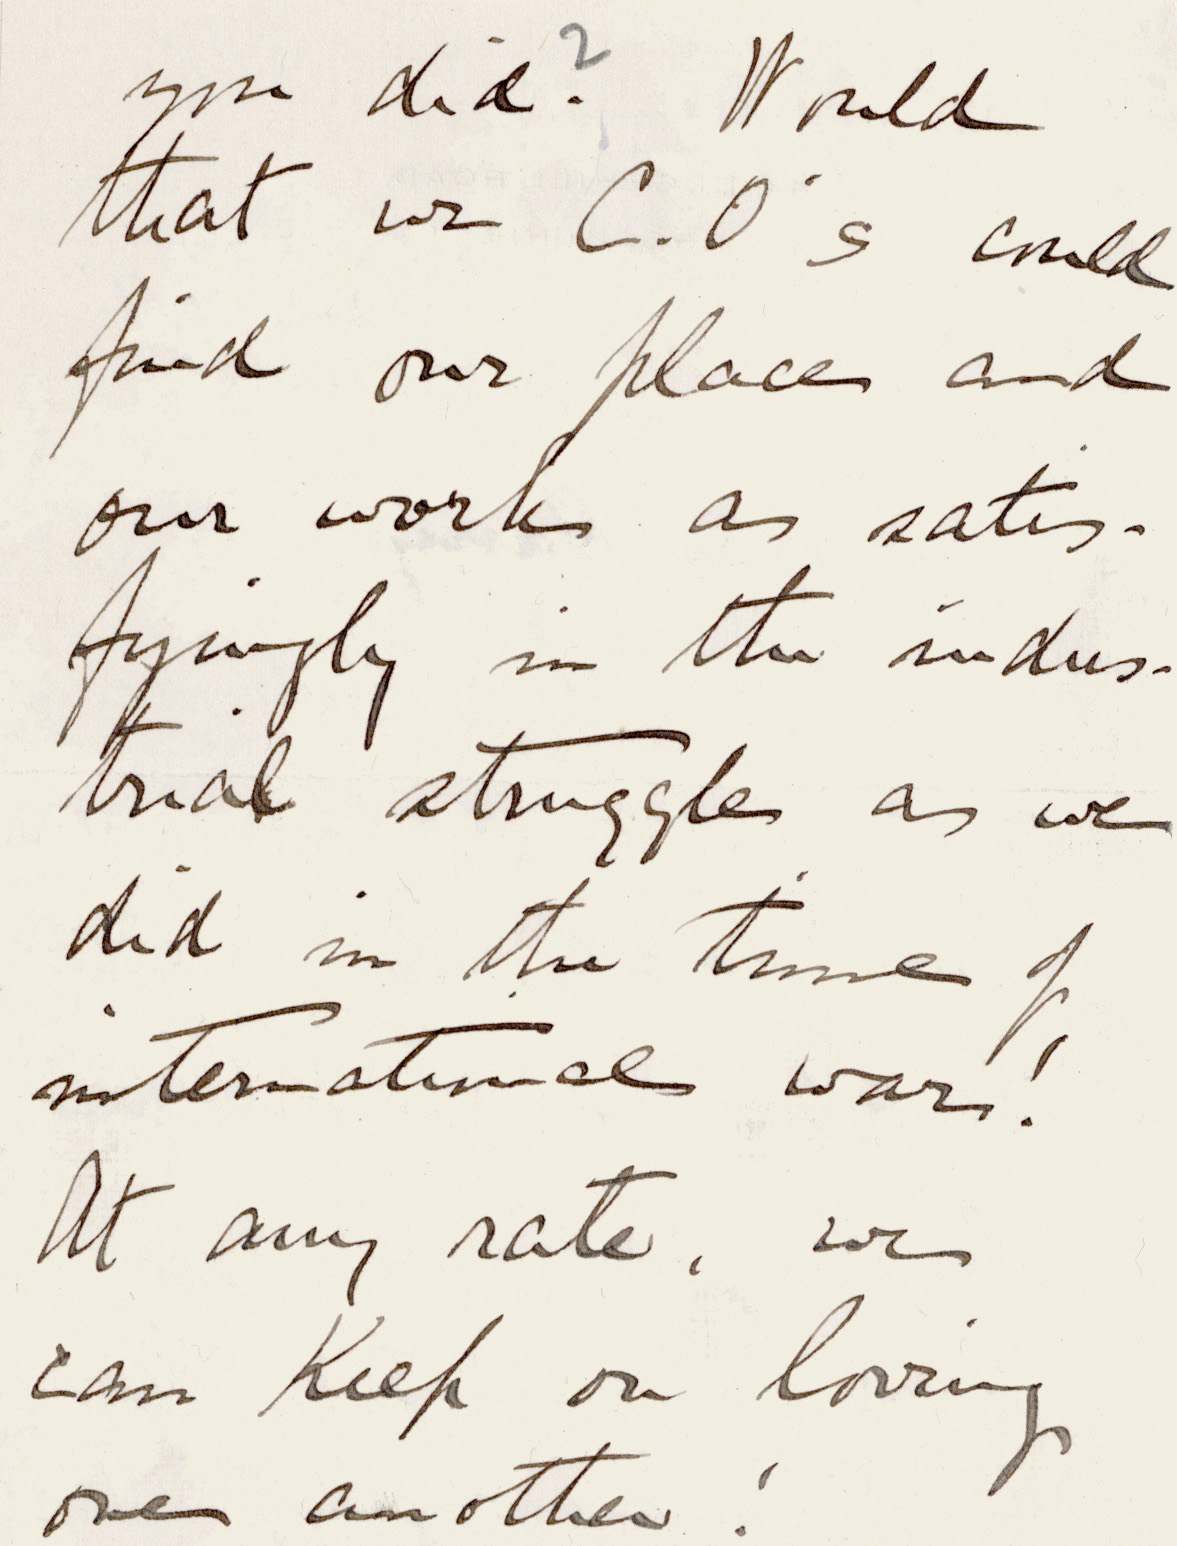 you did? Would
that we C.O's could
find our place and
our work as satis-
fyingly in the indus-
trial struggle as we
did in the time of
international war!
At any rate, we
can keep on loving
one another!